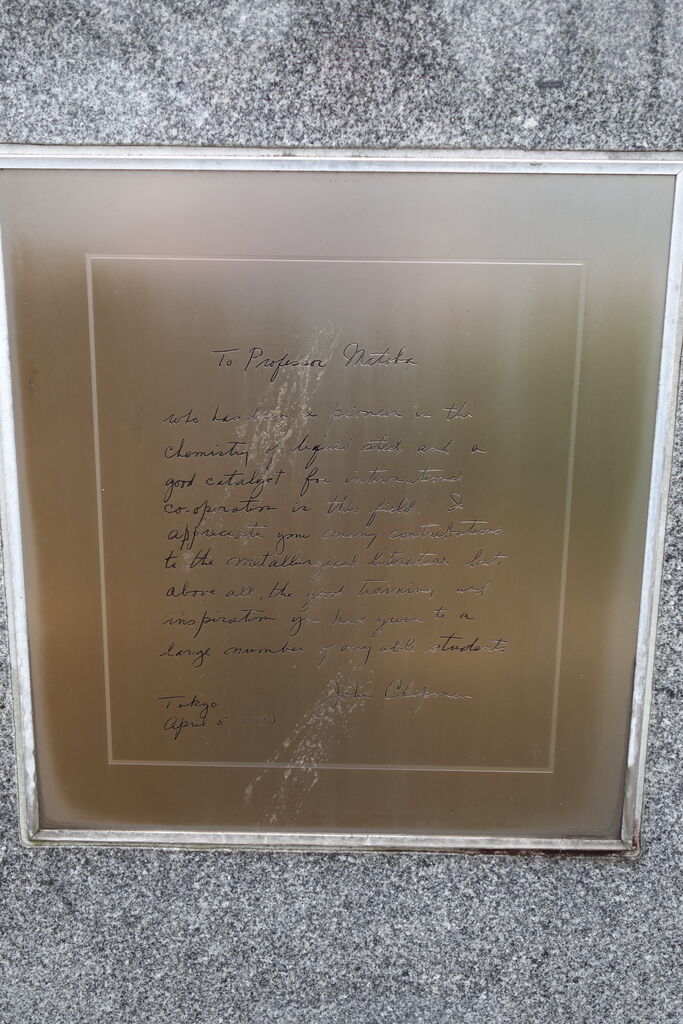 To Professor Matoba
who has been a pioneer in the
chemistry of liquid steel and a
good catalyst for international
co-operation in this field. I
appreciate your many contributions
to the metallurgical literature but
above all, the good training and
inspiration you have given to a
large number of able students
John Chipman
Tokyo
April 5